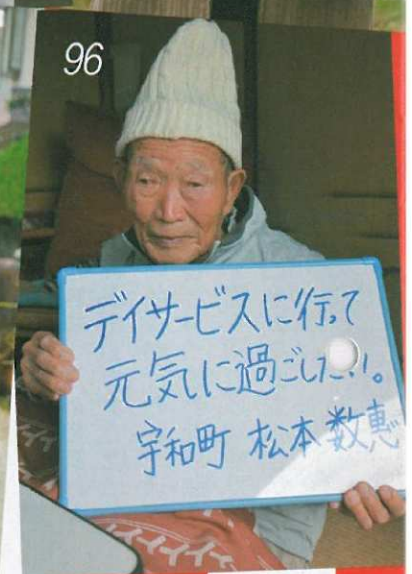 96
デイサービスに行って
元気に過ごしたい。
宇和町 松本数恵